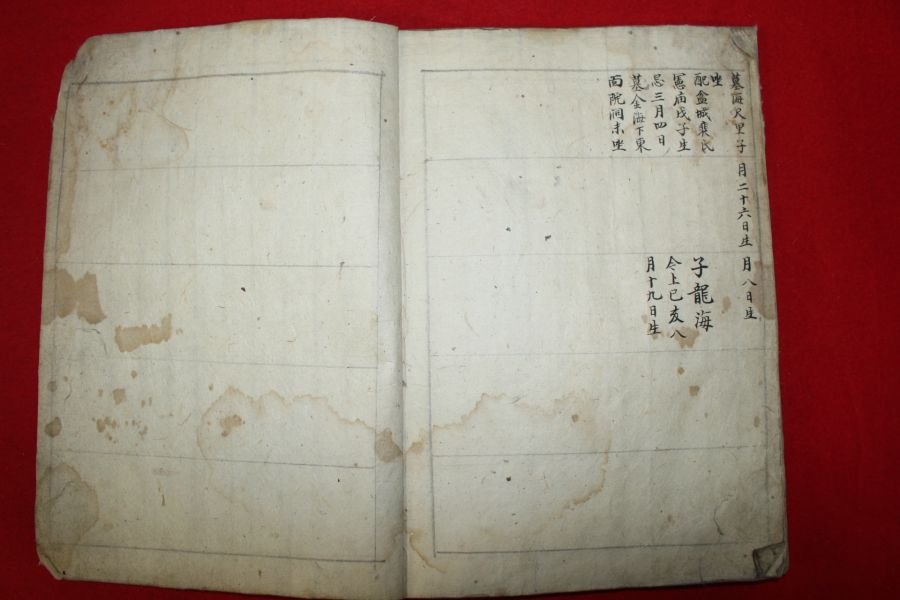 墓海尺里子
坐
配盆城裵氏
憲庙戊子生
忌三月四日
墓金海下東
面院洞未坐
月二十六日生
月八日生
子龍海
今上己亥八
月十九日生